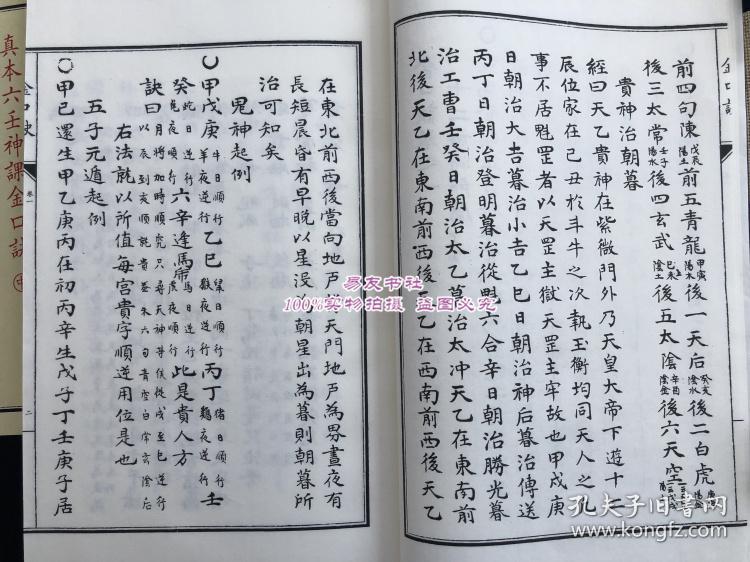 金口訣
前四句陳戊辰陽土前五青龍甲寅陽木後一天后癸亥陰水後二白虎
後三太常後四玄武後五太陰辛酉陰金後六天空
貴神治朝暮
經曰天乙貴神在紫微門外乃天皇大帝下遊十二
辰位家在己丑於斗牛之次執玉衡均同天人之
事不居魁罡者以天罡主獄天罡主牢故也甲戊庚
日朝治大吉暮治小吉乙巳日朝治神后暮治傳送
丙丁日朝治登明暮治從魁六合辛日朝治勝光暮
治工曹壬癸日朝治太乙暮治太冲天乙在東南前
北後天乙在東南前西後天乙在西南前西後天乙
在東北前西後當向地戶天門地戶為界晝夜有
長短晨昏有早晚以星没為朝星出為暮則朝暮所
治可知矣
鬼神起例
○甲戊庚牛日順行羊夜逆行乙巳鼠日順行猴夜逆行丙丁猪日順行鷄夜逆行壬
癸蛇日逆行兔夜順行六辛逢馬虎馬日逆行虎夜順行此是貴人方
訣曰月將加時順究只尋天神等候從戌至巳逆行以辰到亥順就貴螣朱六句青空白常玄陰后
右法就以所值每宮貴字順逆用位是也
五子元遁起例
○甲已還生甲乙庚丙在初丙辛生戊子丁壬庚子居
金口訣
卷一
二
真本六壬神課金口訣
中
易友书社
100%实物拍摄 盗图必究
孔夫子旧书网
www.kongfz.com